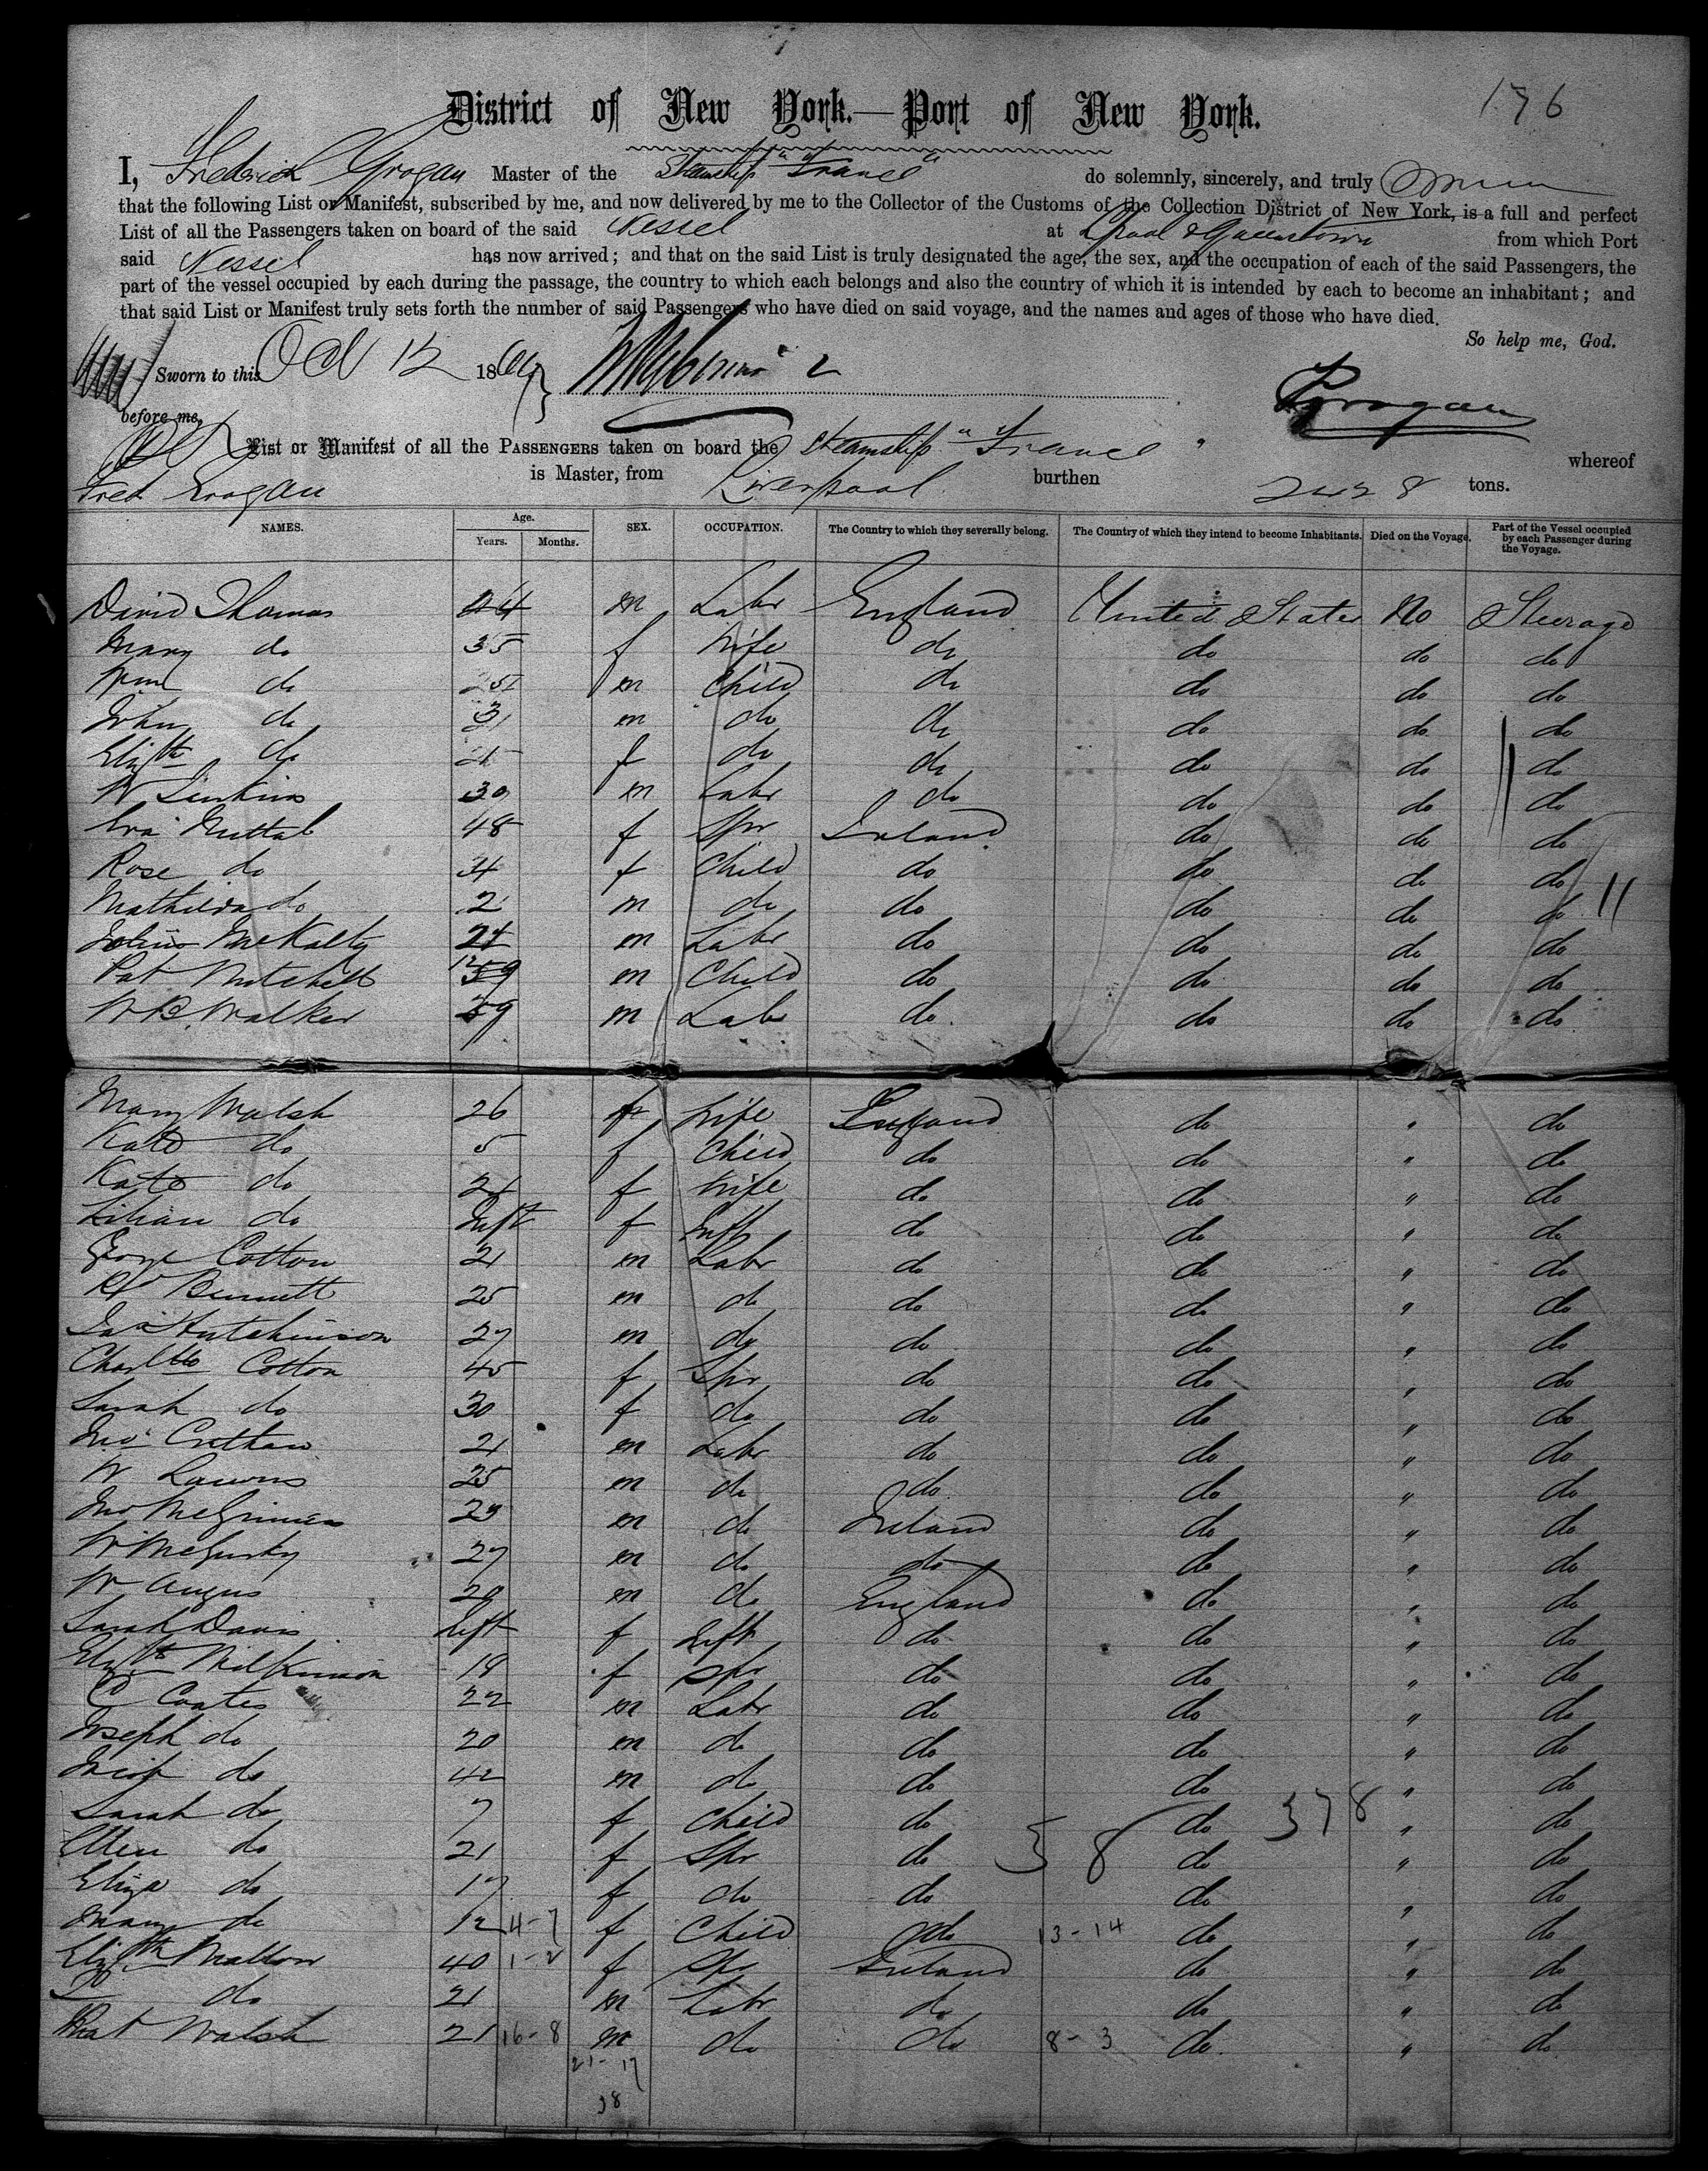 176
District of New York.—Port of New York.
I, Frederick Grogan Master of the Steamship "France" do solemnly, sincerely, and truly
that the following List or Manifest, subscribed by me, and now delivered by me to the Collector of the Customs of the Collection District of New York, is a full and perfect
List of all the Passengers taken on board of the said Vessel at L'pool & Queenstown from which Port
said Vessel has now arrived; and that on the said List is truly designated the age, the sex, and the occupation of each of the said Passengers, the
part of the vessel occupied by each during the passage, the country to which each belongs and also the country of which it is intended by each to become an inhabitant; and
that said List or Manifest truly sets forth the number of said Passengers who have died on said voyage, and the names and ages of those who have died.
So help me, God.
Sworn to this Oct 12 1869
before me, F Grogan
List or Manifest of all the PASSENGERS taken on board the Steamship "France" whereof
Fred Grogan is Master, from Liverpool burthen 2428 tons.
NAMES. Age. Years. Months. SEX. OCCUPATION. The Country to which they severally belong. The Country of which they intend to become Inhabitants. Died on the Voyage. Part of the Vessel occupied by each Passenger during the Voyage.
David Thomas 44 m Labr England United States No Steerage
Mary do 35 f Wife do do do do
Wm do m Child do do do do
John do 3 m do do do do do
Elizth do f do do do do do
W Jenkins 30 m Labr do do do do
Eva Nuttal 48 f Spr Ireland do do do
Rose do f Child do do do do
Mathilda do 2 m do do do do do
McNalty m Labr do do do do
Pat Mitchell m Child do do do do
W B Walker 29 m Labr do do do do
Mary Walsh 26 f Wife England do " do
Kate do 5 f Child do do " do
Kate do 21 f Wife do do " do
Lilian do Inft f Inft do do " do
George Cotton 21 m Labr do do " do
Rd Bennett 25 m do do do " do
Jas Hutchinson 27 m do do do " do
Charltte Cotton 45 f Spr do do " do
Sarah do 30 f do do do " do
Jno 21 m Labr do do " do
W 25 m do do do " do
Jno McGinness 23 m do Ireland do " do
W McGurty 27 m do do do " do
W Angus 29 m do England do " do
Sarah Davis Inft f Inft do do " do
Elizth Wilkinson 18 f Spr do do " do
C Coates 22 m Labr do do " do
Joseph do 20 m do do do " do
do 42 m do do do " do
Sarah do 7 f Child do do " do
Ellen do 21 f Spr do do " do
Eliza do 17 f do do do " do
Mary do 12 4-7 f Child do 13-14 do " do
Elizth Walton 40 1-2 f Spr Ireland do " do
do 21 m Labr do do " do
Pat Walsh 21 16-8 m do do 8-3 do " do
21-17
38